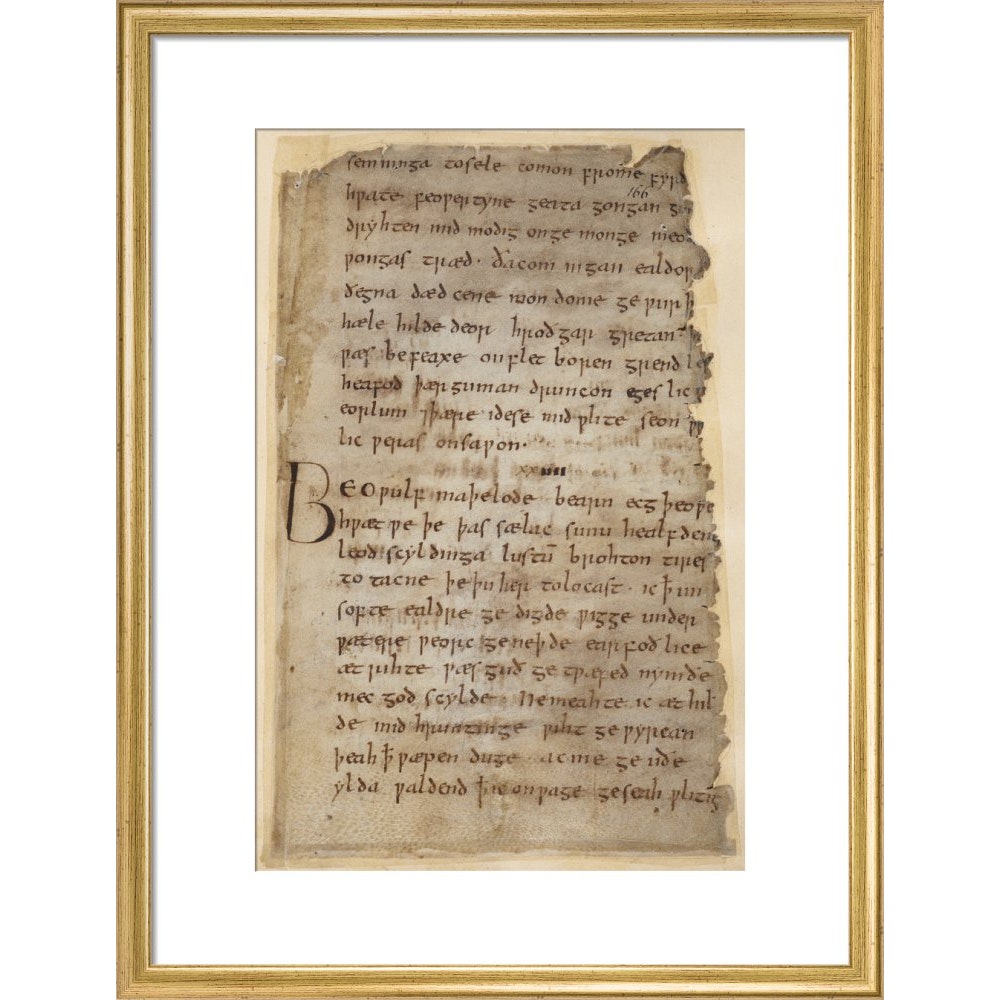 semninga tosele comon frome fyrd
166
hƿate feoƿertyne geata gongan
dryhten mid modig onge monge meo
ƿongas træd · ða com in gan ealdor
ðegna dæd cene mon dome ge ƿur þ
hæle hilde deor hroðgar gretan þ
ƿæs be feaxe onflet boren grendl
heafod þær guman druncon egeslic
eorlum ⁊ þære idese mid ƿlite seon
lic ƿeras onsaƿon ·
xxiiii
Beoƿulf maþelode bearn ecg þeoƿe
hƿæt ƿe þe þas sælac sunu healfdene
leod scyldinga lustū brohton tires
to tacne þe þu her tolocast · ic ꝥ un
softe ealdre ge digde ƿigge under
ƿætere ƿeorc geneþde earfoð lice
æt rihte ƿæs guð ge tƿæfed nymðe
mec god scylde · Nemeahte ic æt hil
de mid hruntinge ƿiht ge ƿyrcan
þeah ꝥ ƿæpen duge · ac me ge uðe
ylda ƿaldend ꝥ ic onƿage geseah ƿlitig